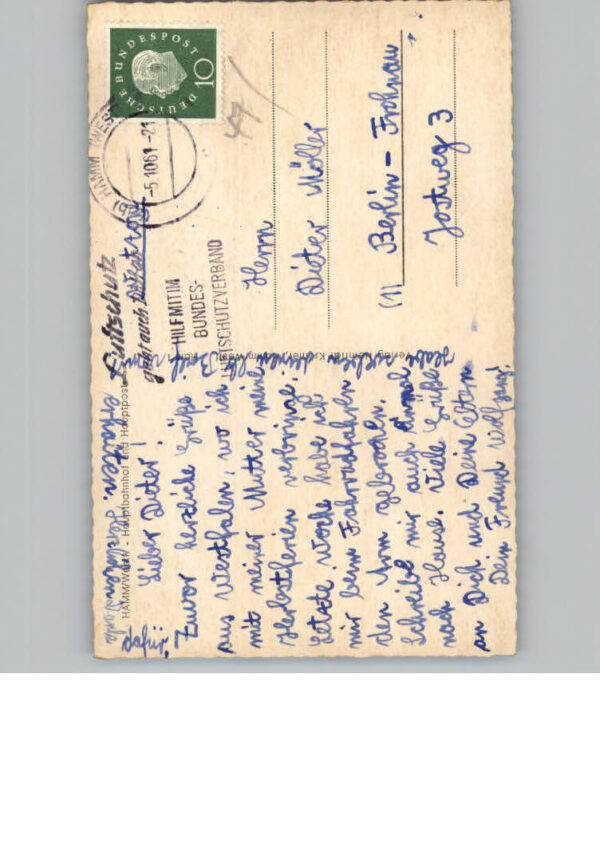 HAMM/Westf. - Hauptbahnhof und Hauptpost
Lieber Dieter!
Zuvor herzliche Grüße
aus Westfalen, wo ich
mit meiner Mutter meine
Herbstferien verbringe.
Letzte Woche habe ich
mir beim Fahrradfahren
den Arm gebrochen.
Schreibe mir auch einmal
nach Hause. Viele Grüße
an Dich und Deine Eltern
Dein Freund Wolfgang!
Habe soeben deinen lb. Brief vom
erhalten. Herzlichen Dank
dafür
Verlag
DEUTSCHE BUNDESPOST
10
HAMM (WESTF
-5.10.61-21
Luftschutz
geht auch
HILF MIT IM
BUNDES-
LUFTSCHUTZVERBAND
Herrn
Dieter Möller
(1) Berlin - Frohnau
Jostweg 3